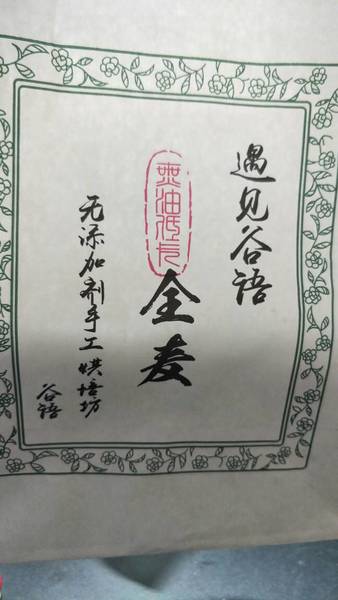 遇见谷语
無油低卡
全麦
无添加剂手工烘培坊
谷语